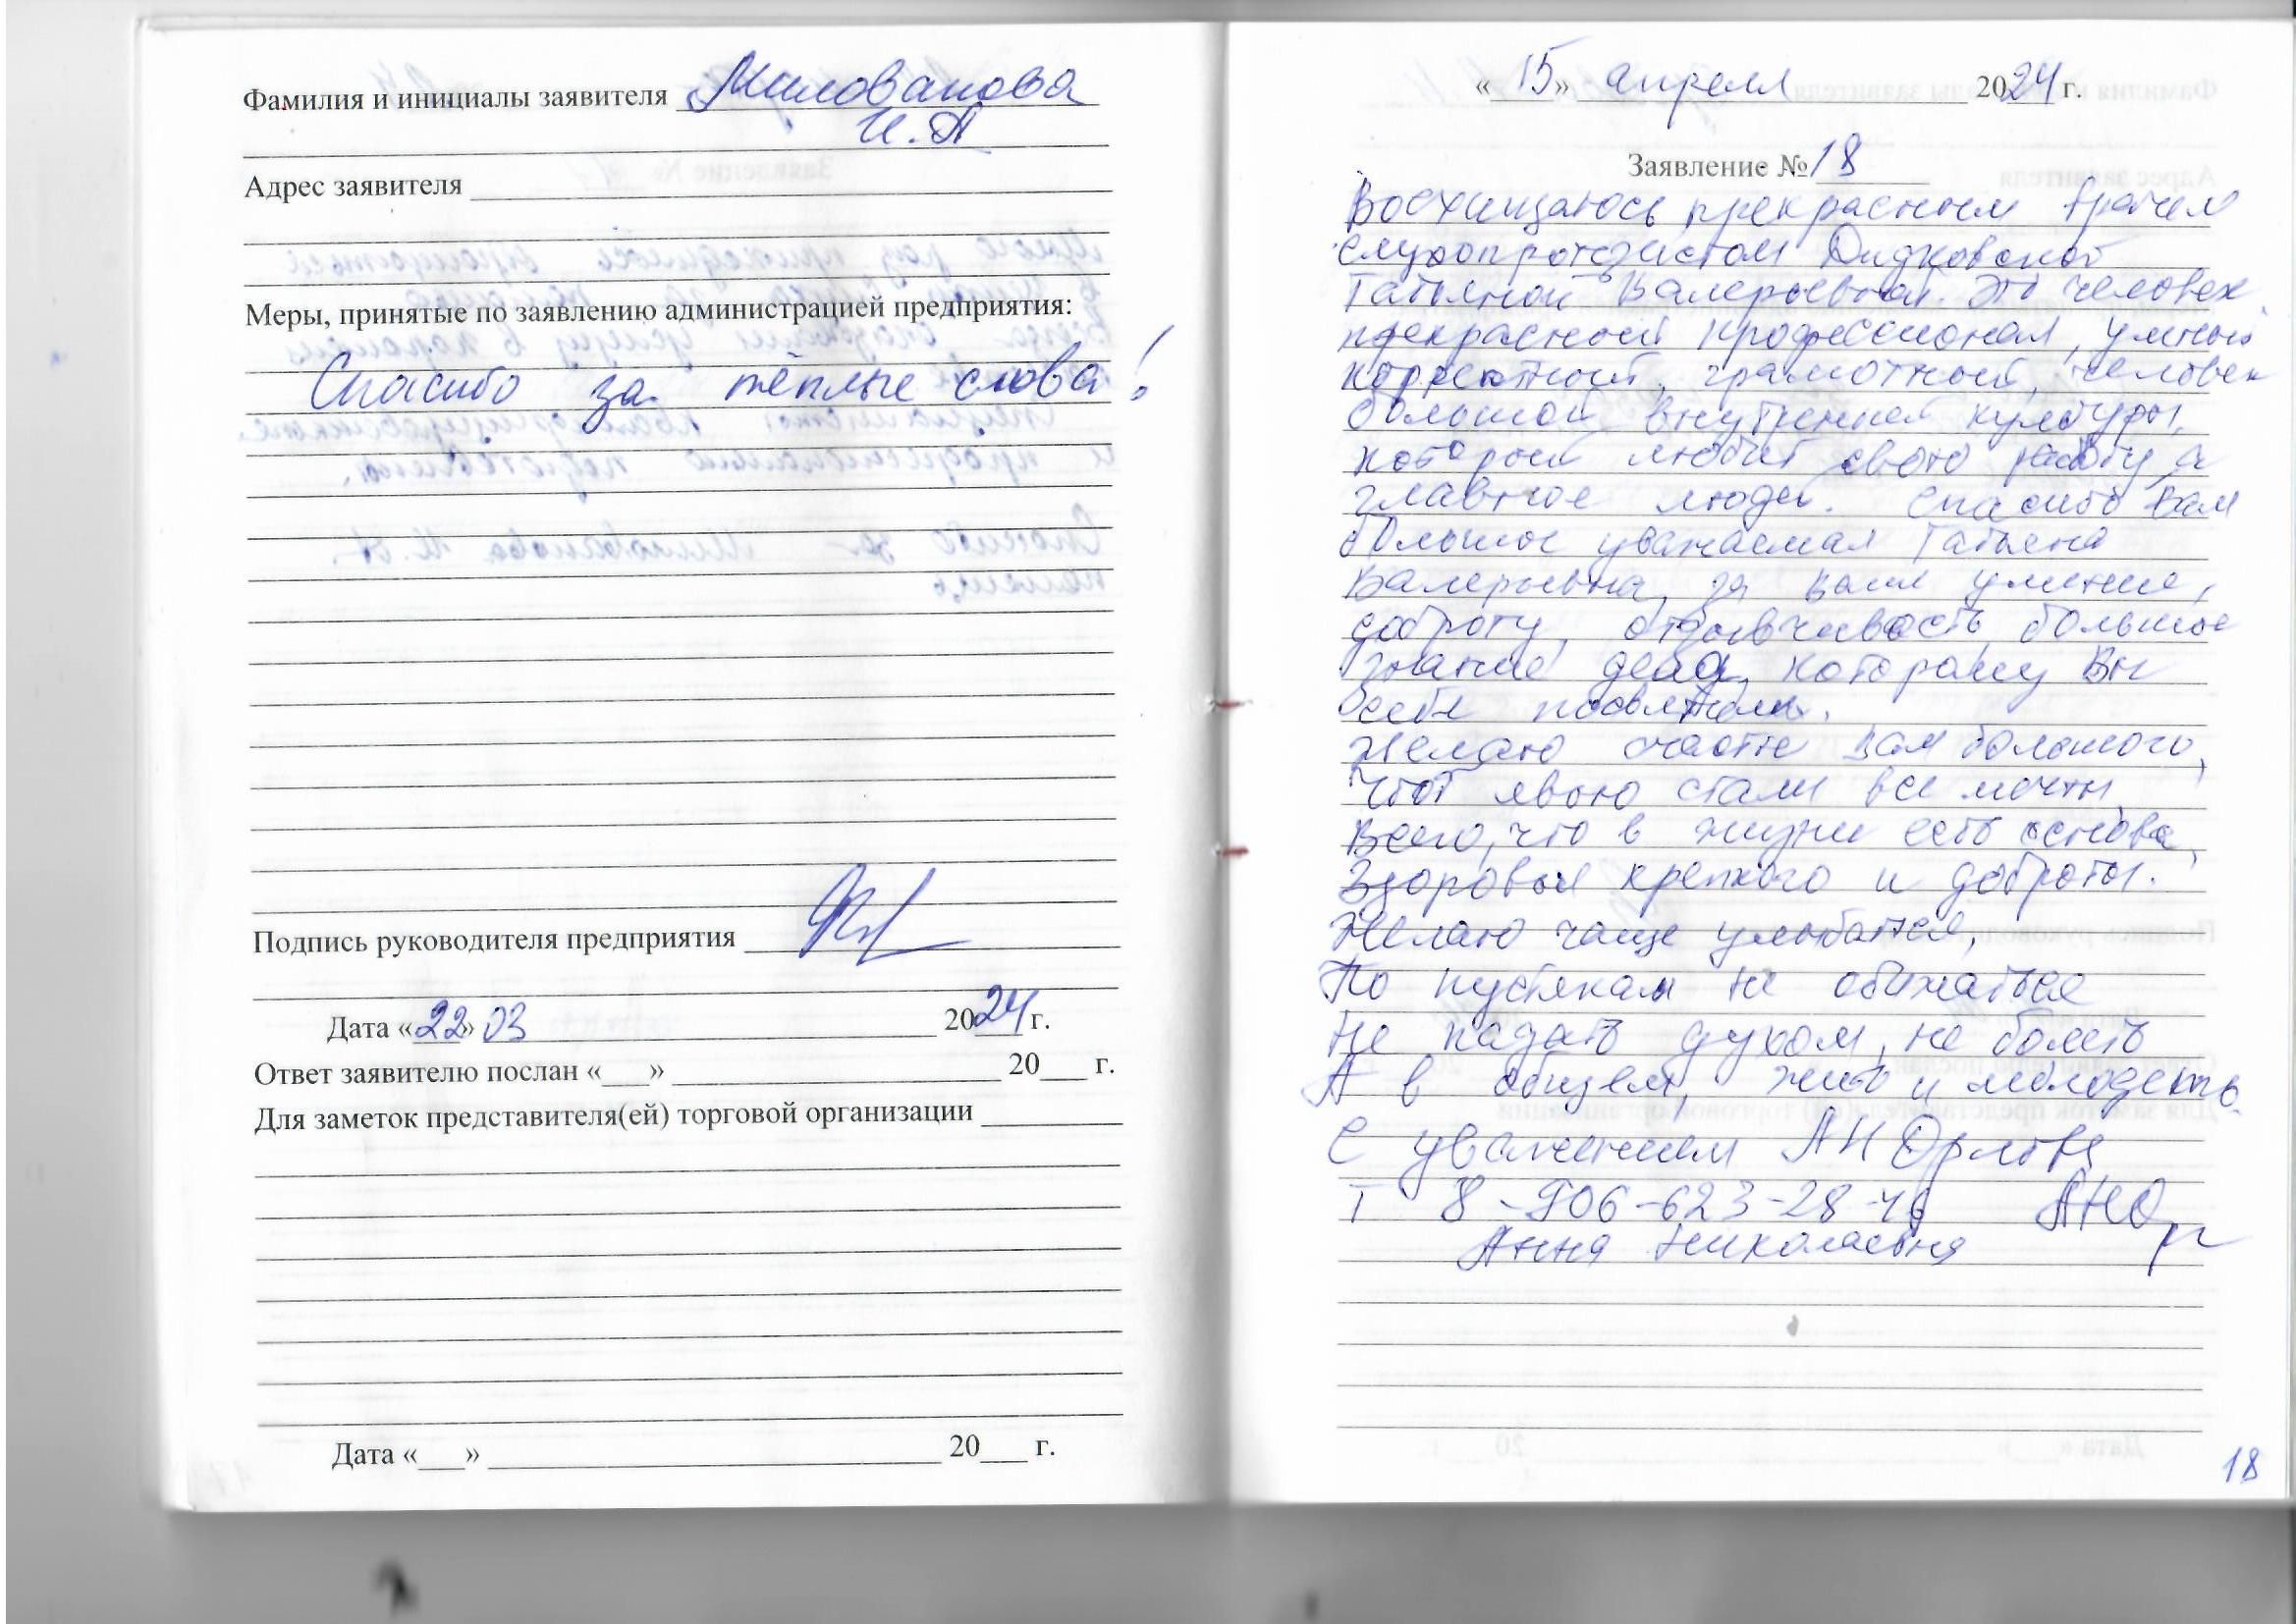 Фамилия и инициалы заявителя Милованова
И.А
Адрес заявителя
Меры, принятые по заявлению администрацией предприятия:
Спасибо за тёплые слова!
Подпись руководителя предприятия
Дата «22» 03 2024 г.
Ответ заявителю послан «___» 20___ г.
Для заметок представителя(ей) торговой организации
Дата «___» 20___ г.
«15» апреля 2024 г.
Заявление №18
Восхищаюсь прекрасным врачем
слухопротезистом Дидковской
Татьяной Валерьевной. Это человек
прекрасный профессионал, умный
корректный, грамотный, человек
большой внутренней культуры,
который любит свою работу, а
главное людей. Спасибо Вам
большое уважаемая Татьяна
Валерьевна за ваши умение,
доброту, отзывчивость большое
знание дела, которому Вы
себя посвятили.
Желаю счастье вам большого,
Чтоб явью стали все мечты,
Всего, что в жизни есть основа,
Здоровья крепкого и доброты.
Желаю чаще улыбаться,
По пустякам не обижаться
Не падать духом, не болеть
А в общем, жить и молодеть.
С уважением АН Орлова
Т 8-906-623-28-46 АНОр
Анна Николаевна
18